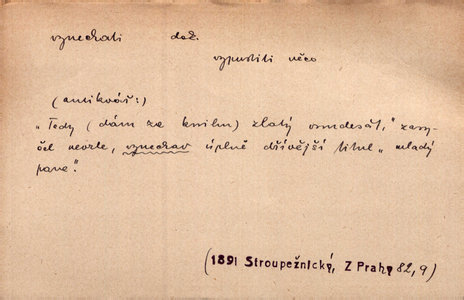 vznechati dok.
vypustiti něco
(antikvář:)
„Tedy (dám za knihu) zlatý osmdesát,“ zasy-
čel nevrle, vznechav úplně dřívější titul „mladý
pane“.
(1891 Stroupežnický, Z Prahy 82, 9)